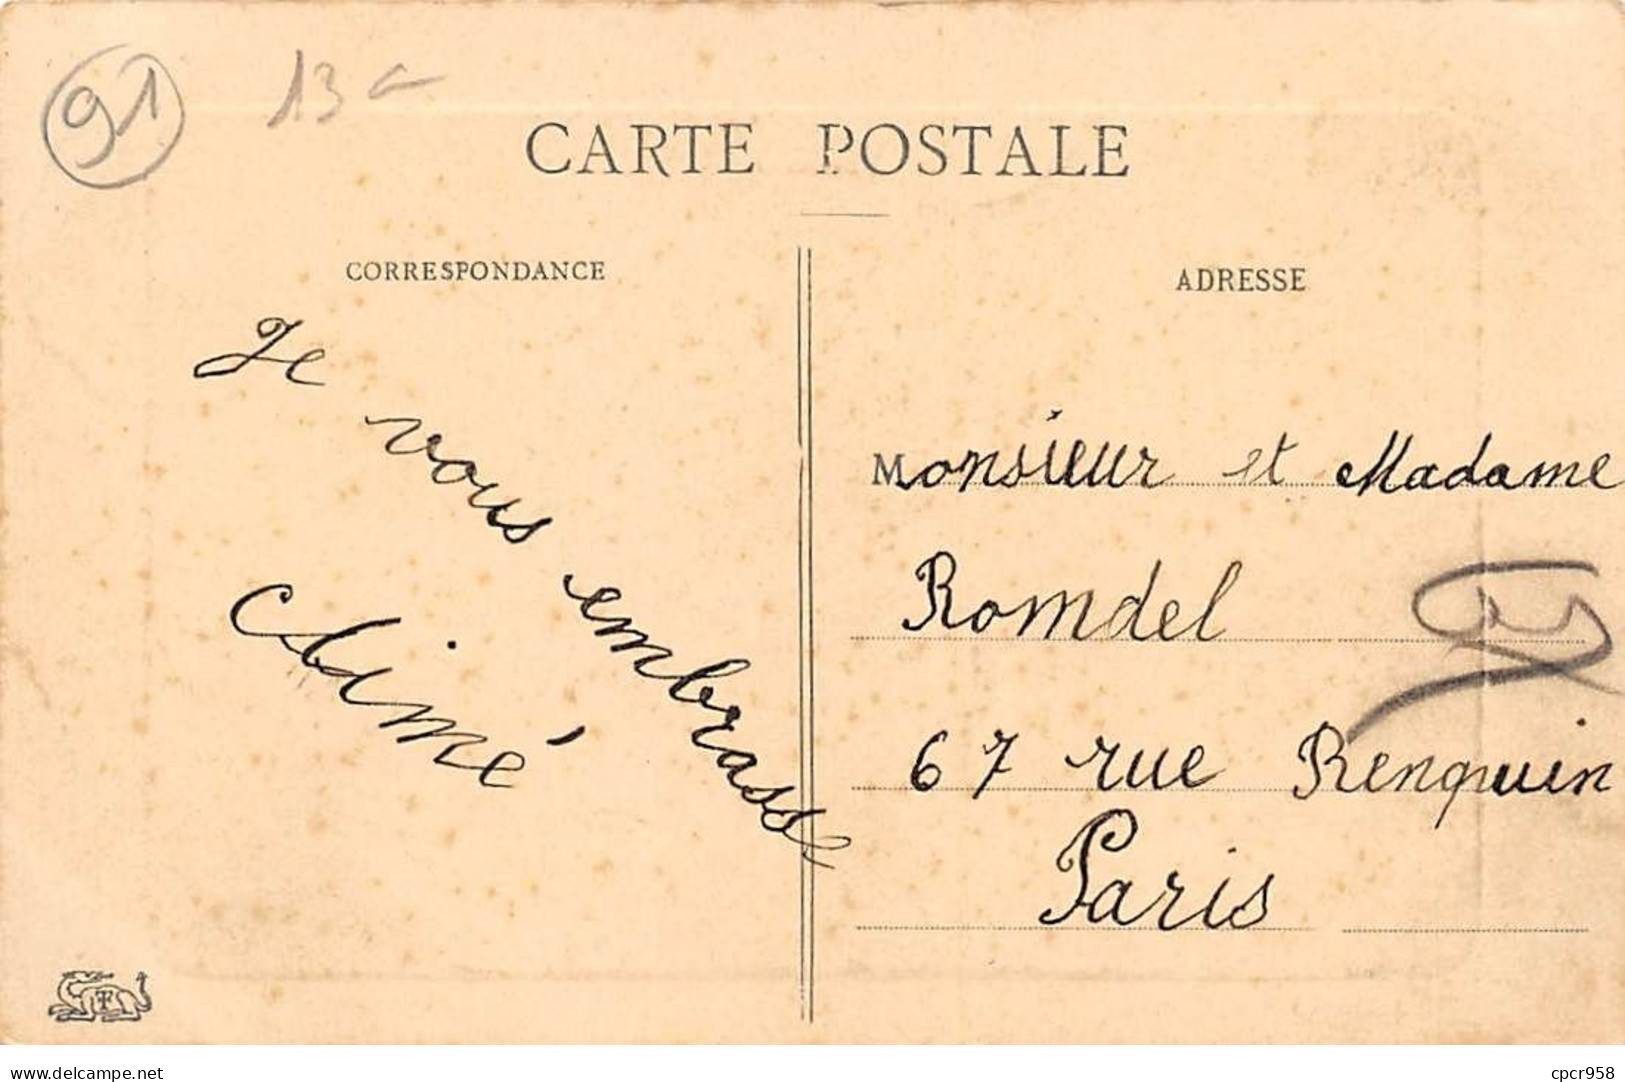 91
13
CARTE POSTALE
CORRESPONDANCE
ADRESSE
Je vous embrasse
Aimé
Monsieur et Madame
Romdel
67 rue Renquin
Paris
TF
www.delcampe.net
cpcr958